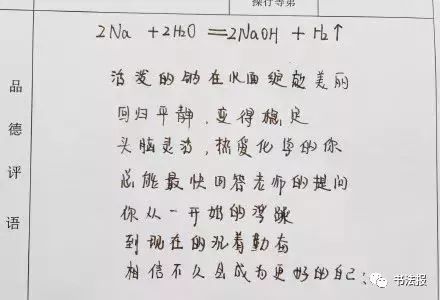 操行等第
2Na + 2H2O = 2NaOH + H2↑
品德评语
活泼的钠在水面绽放美丽
回归平静，变得稳定
头脑灵活，热爱化学的你
总能最快回答老师的提问
你从一开始的浮躁
到现在的沉着勤奋
相信不久会成为更好的自己；
书法报